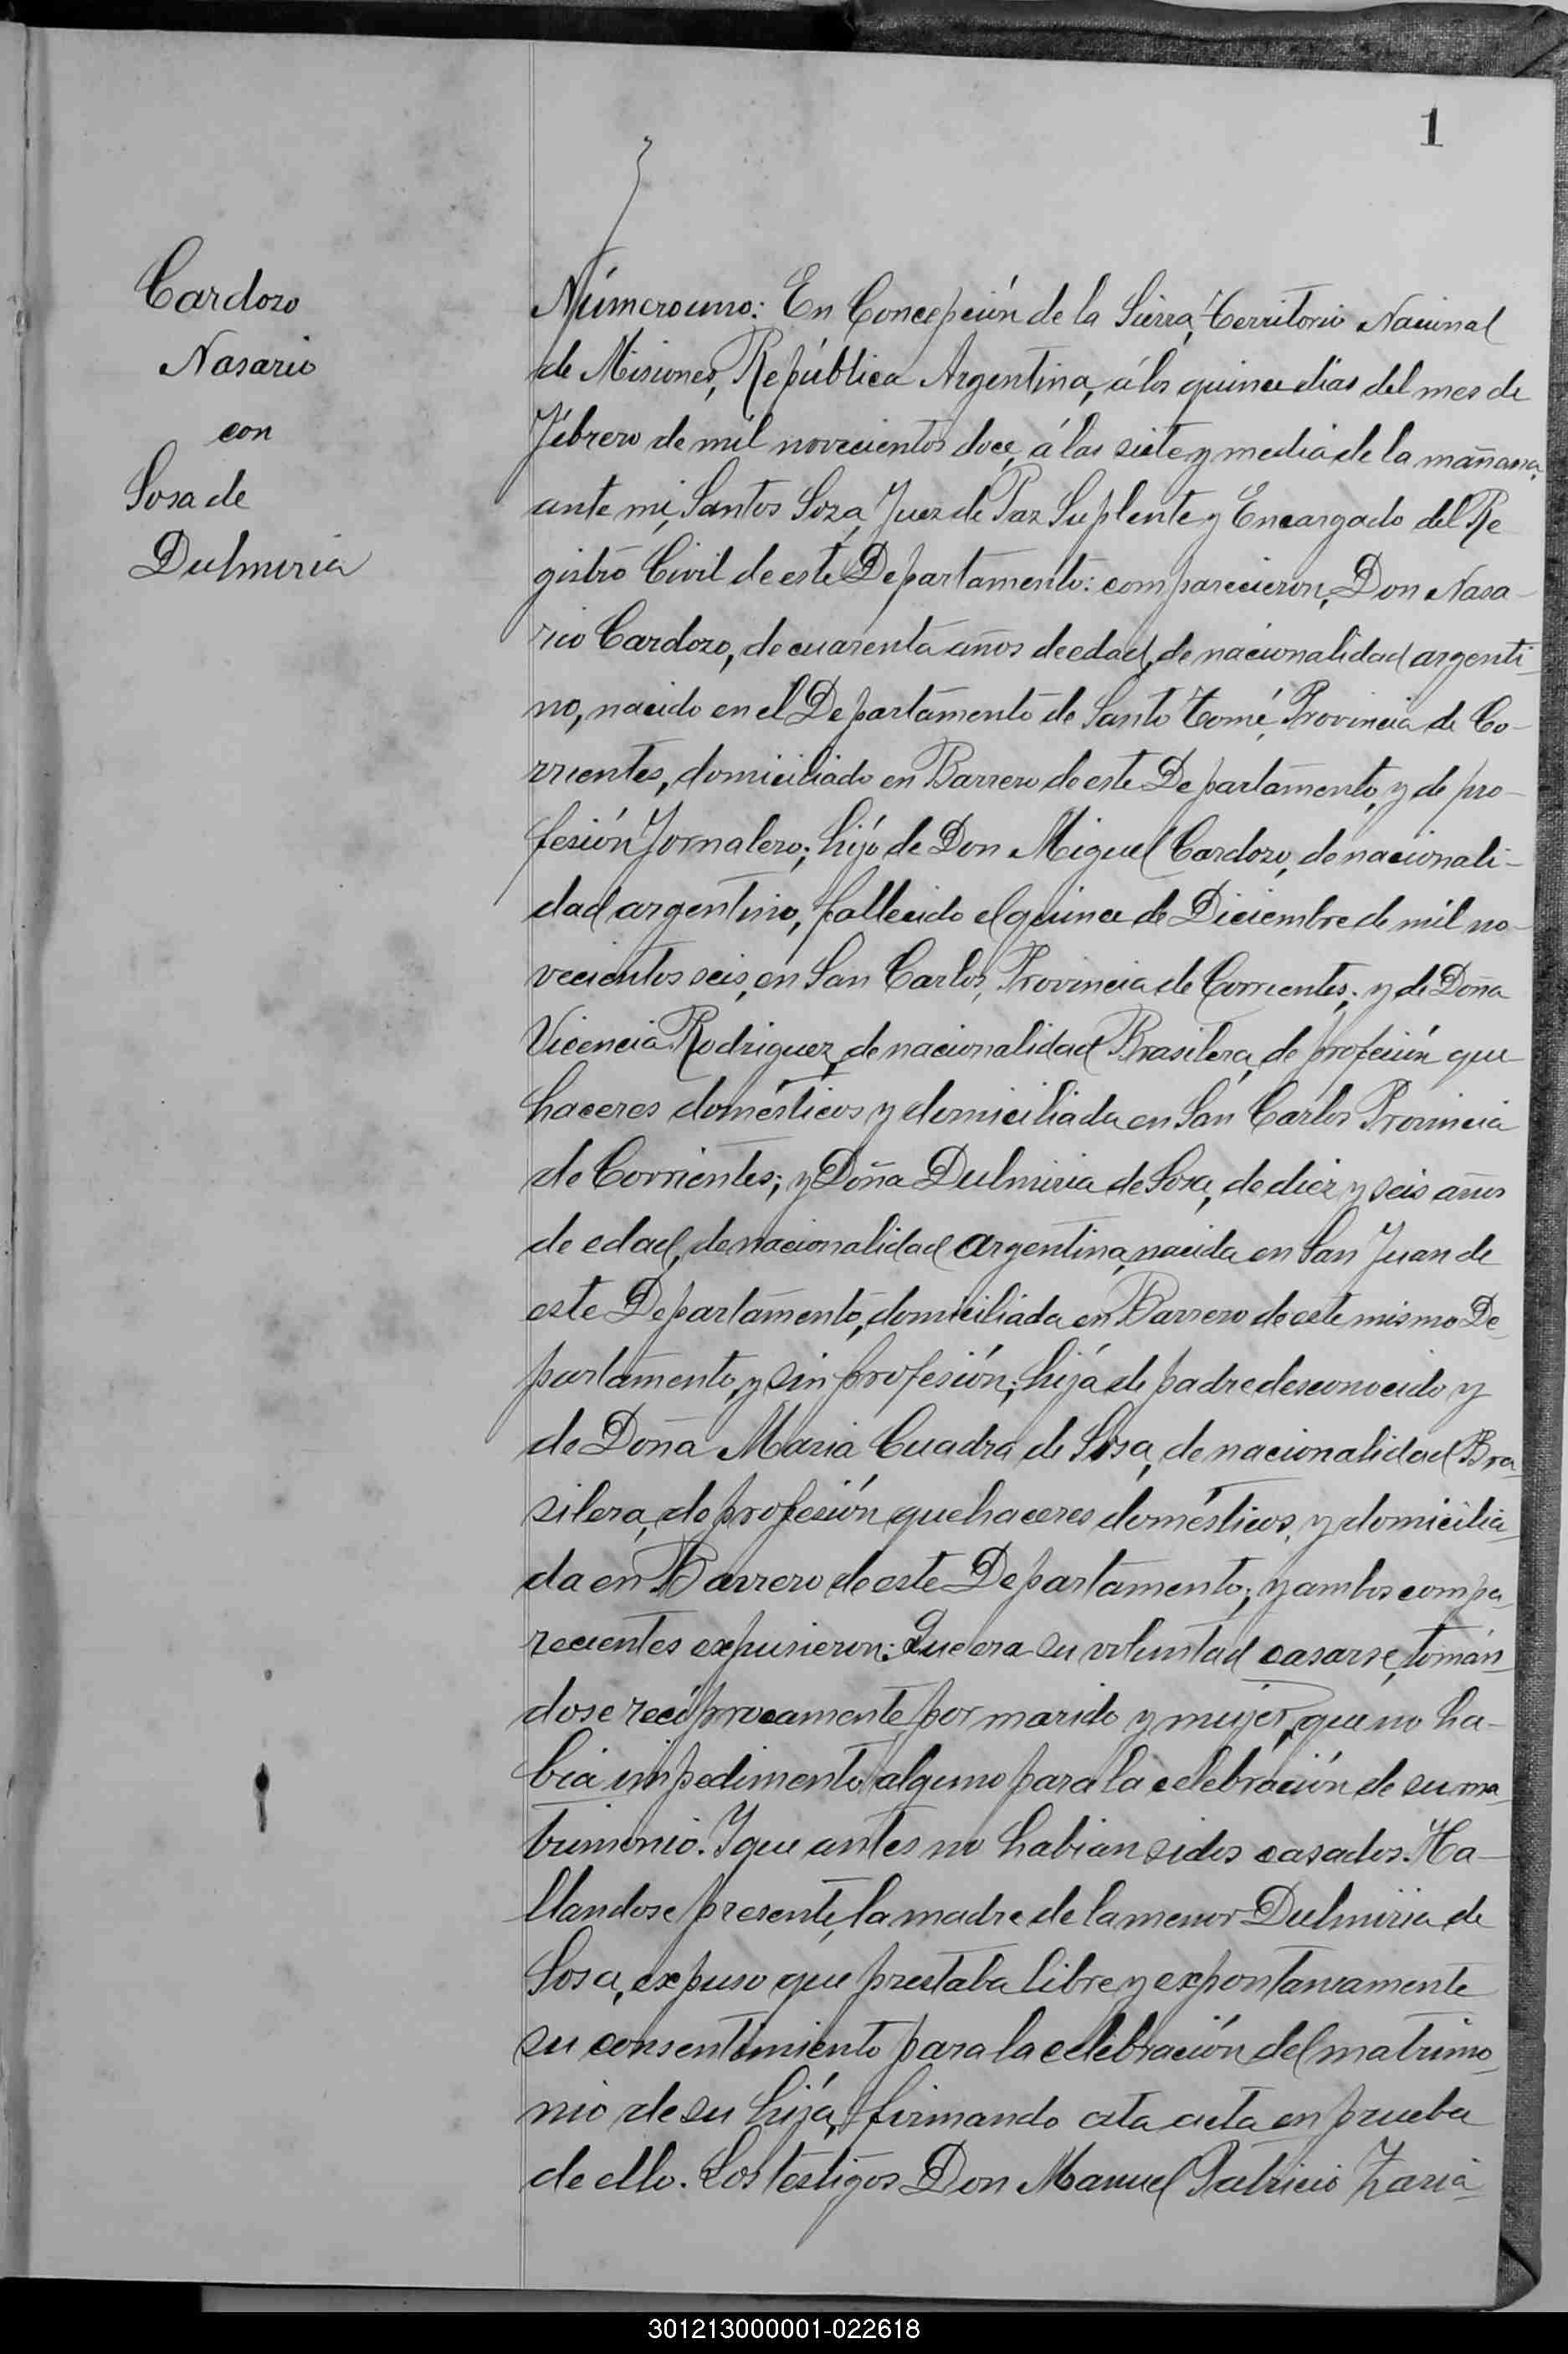 1
Cardozo
Nasario
con
Sosa de
Dulmiria
Número uno: En Concepción de la Sierra, Territorio Nacional
de Misiones, República Argentina, á los quince dias del mes de
Febrero de mil novecientos doce, á las siete y media de la mañana,
ante mi, Santos Soza, Juez de Paz Suplente y Encargado del Re
gistro Civil de este Departamento: comparecieron, Don Nasa-
rio Cardozo, de cuarenta años de edad, de nacionalidad argenti-
no, nacido en el Departamento de Santo Tomé, Provincia de Co-
rrientes, domiciliado en Barrero de este Departamento, y de pro-
fesión Jornalero; hijo de Don Miguel Cardozo, de nacionali-
dad argentino, fallecido el quince de Diciembre de mil no-
vecientos seis, en San Carlos, Provincia de Corrientes; y de Doña
Vicencia Rodriguez, de nacionalidad Brasilera, de profesión que
haceres domésticos y domiciliada en San Carlos Provincia
de Corrientes; y Doña Dulmiria de Sosa, de diez y seis años
de edad, de nacionalidad argentina, nacida en San Juan de
este Departamento, domiciliada en Barrero de este mismo De-
partamento, y sin profesión; hija de padre desconocido y
de Doña Maria Cuadra de Sosa, de nacionalidad Bra-
silera, de profesión quehaceres domésticos, y domicilia-
da en Barrero de este Departamento; y ambos compa-
recientes expusieron: Que era su voluntad casarse, tomán-
dose recíprocamente por marido y mujer, que no ha-
bia impedimento alguno para la celebración de su ma-
trimonio. Y que antes no habian sidos casados. Ha-
llandose presente, la madre de la menor Dulmiria de
Sosa, expuso que prestaba libre y expontaneamente
su consentimiento para la celebración del matrimo-
nio de su hija, firmando esta acta en prueba
de ello. Los testigos Don Manuel Patricio
301213000001-022618